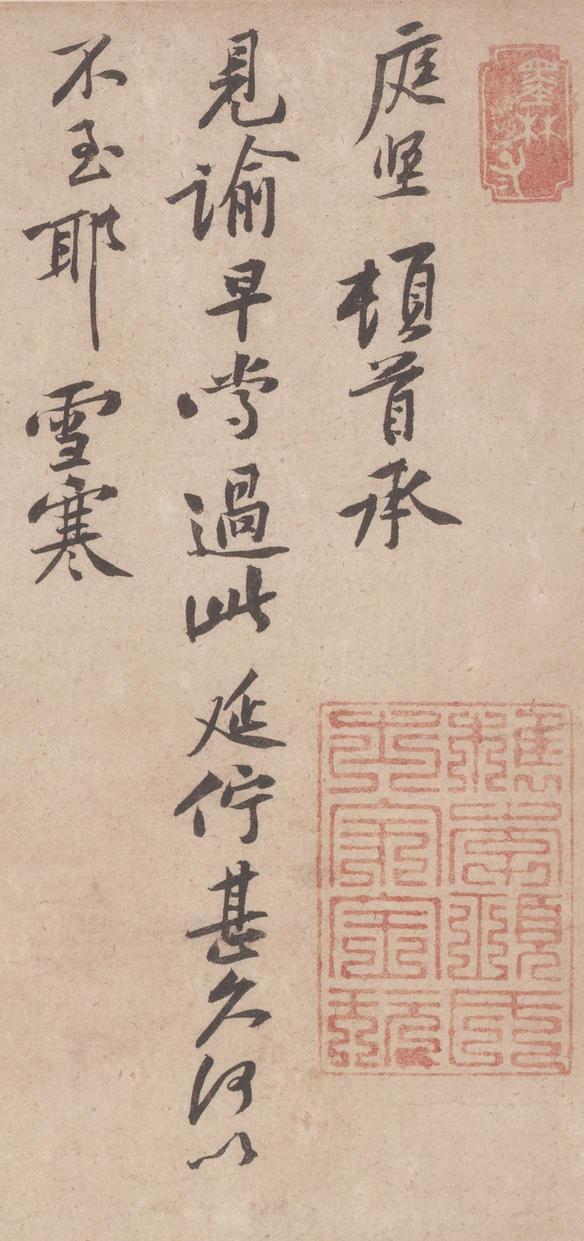 庭堅頓首承
見諭早嘗過此延佇甚久何以
不至耶雪寒